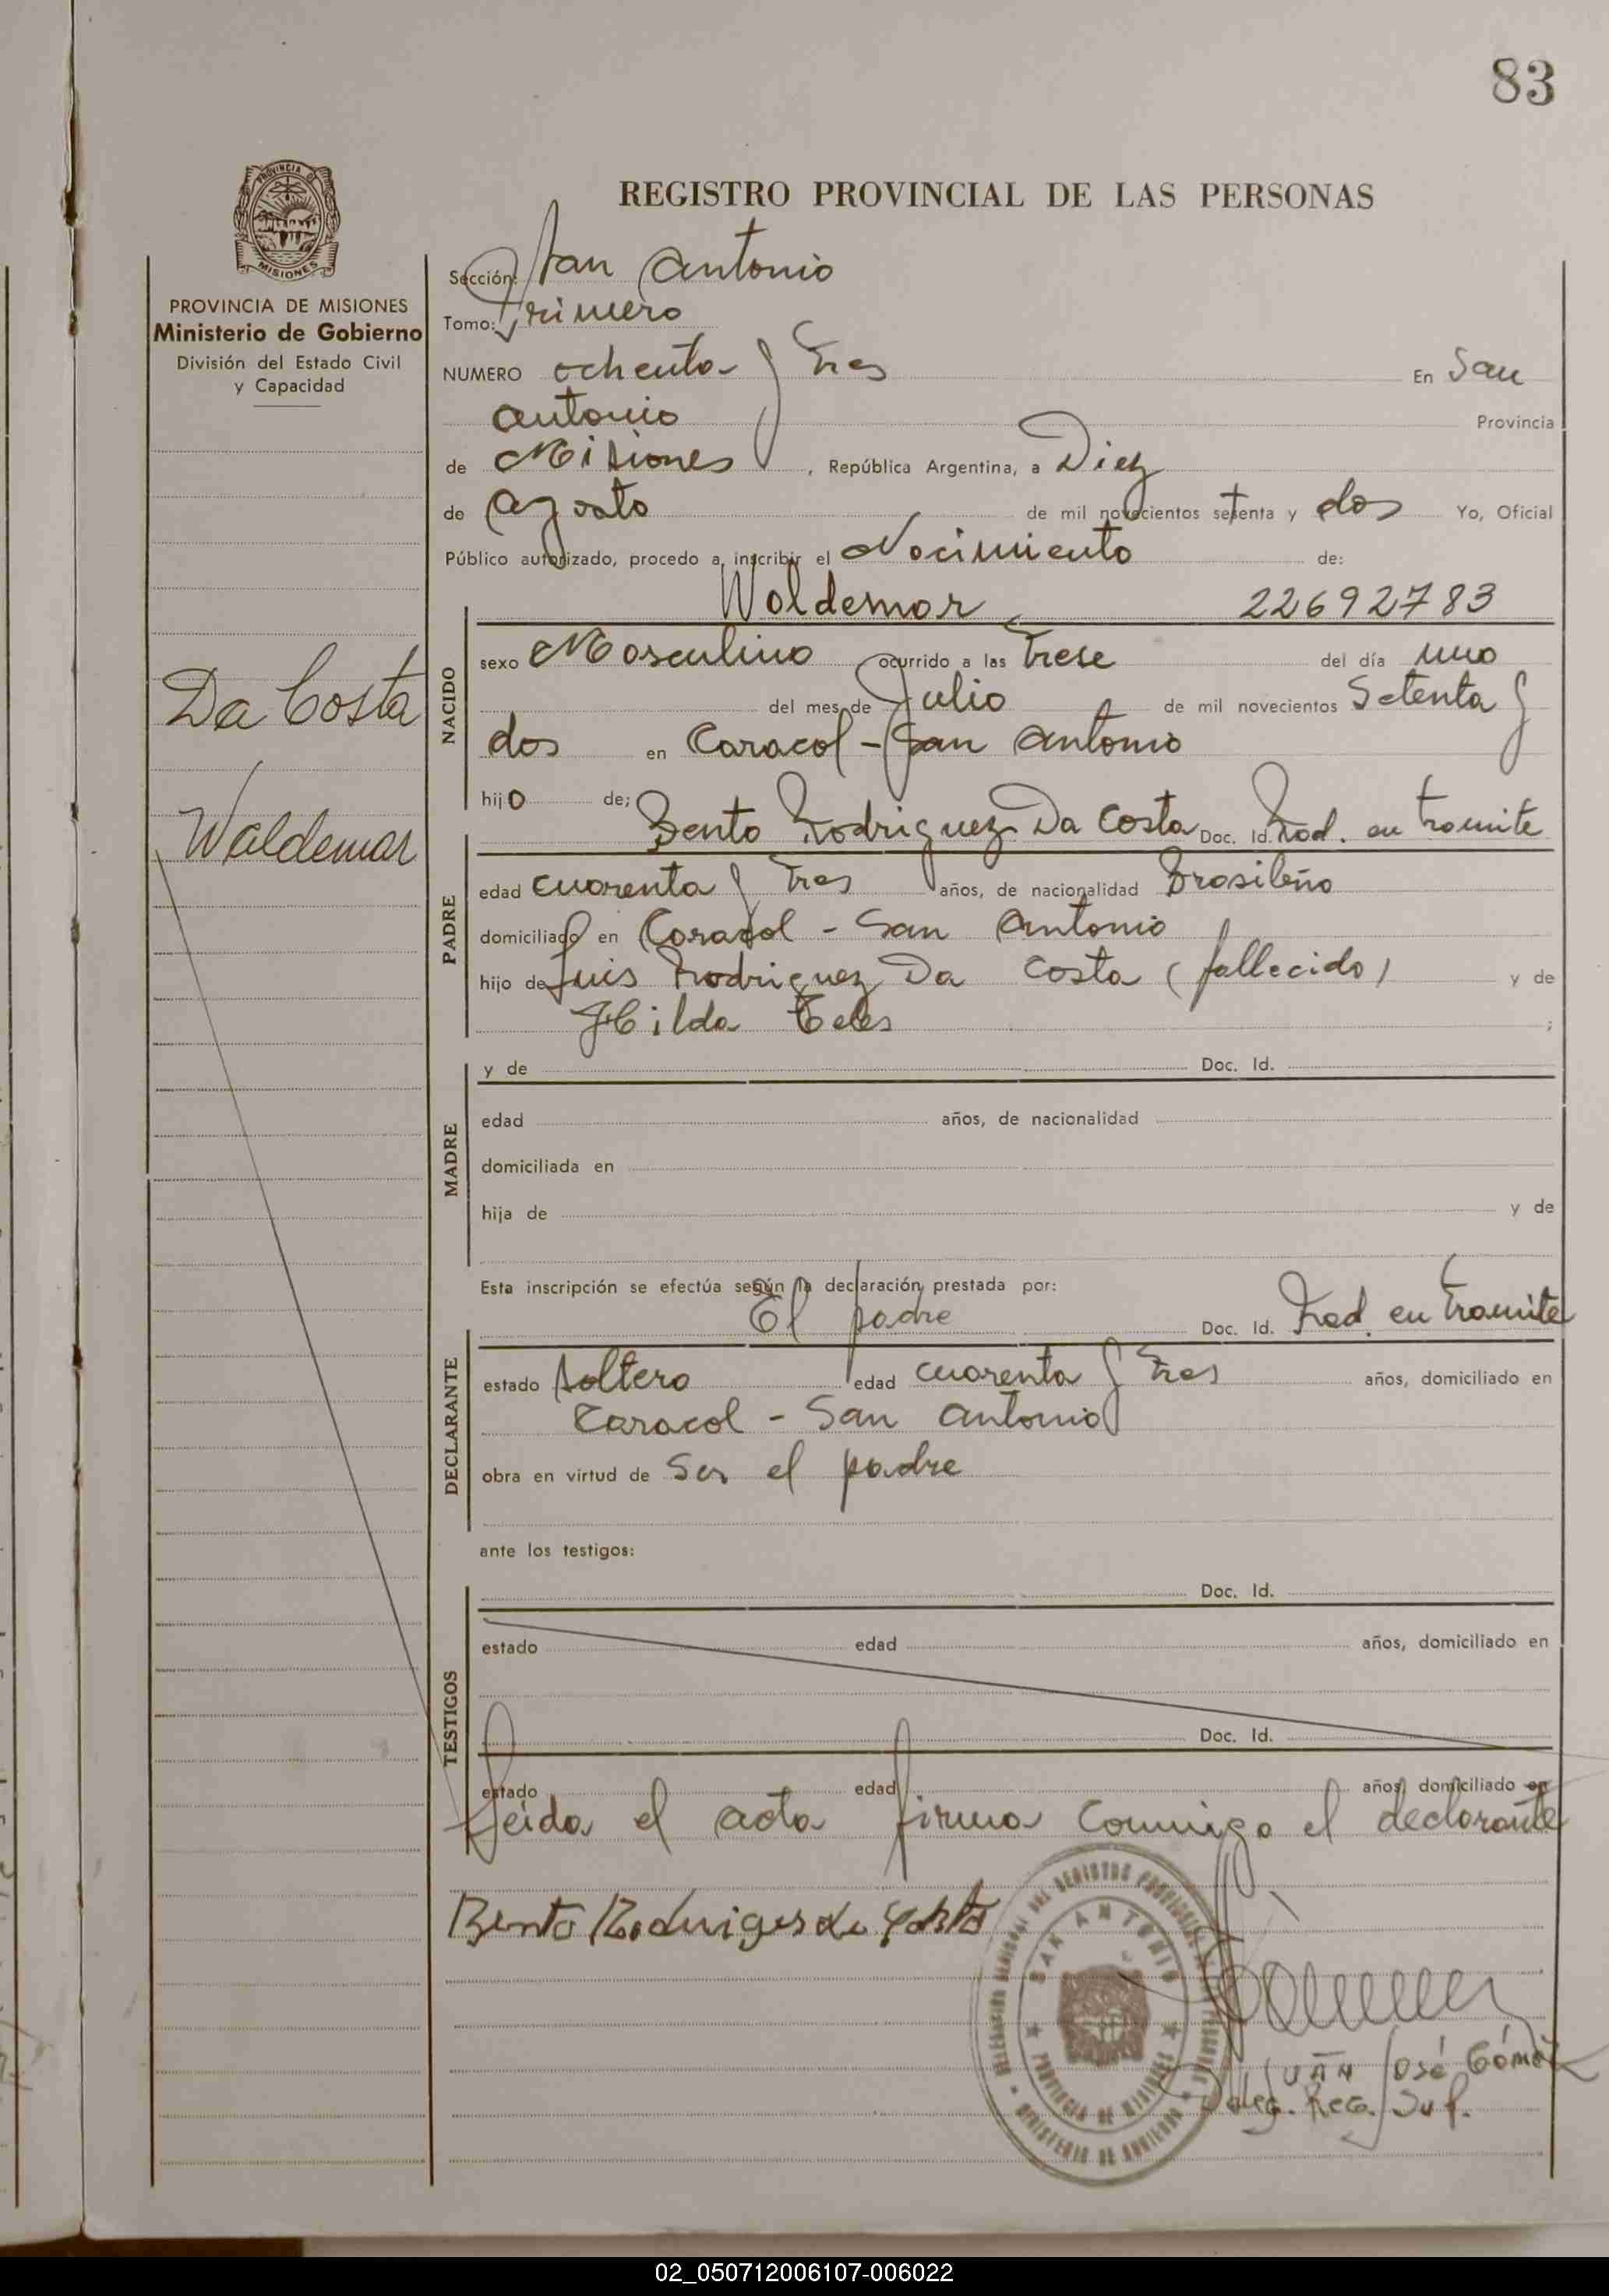 83
PROVINCIA DE
MISIONES
PROVINCIA DE MISIONES
Ministerio de Gobierno
División del Estado Civil
y Capacidad
Da Costa
Waldemar
REGISTRO PROVINCIAL DE LAS PERSONAS
Sección: San Antonio
Tomo: Primero
NUMERO ochenta y tres En San
Antonio Provincia
de Misiones, República Argentina, a Diez
de Agosto de mil novecientos setenta y dos Yo, Oficial
Público autorizado, procedo a inscribir el Nacimiento de:
Waldemar 22692783
NACIDO
sexo Masculino ocurrido a las trese del día uno
del mes de Julio de mil novecientos Setenta y
dos en Caracol - San Antonio
hijo de;
Bento Rodriguez Da Costa Doc. Id. Rad. en tramite
PADRE
edad cuarenta y tres años, de nacionalidad Brasileño
domiciliado en Caracol - San Antonio
hijo de Luis Rodriguez Da Costa (fallecido) y de
Hilda Teles ;
MADRE
y de Doc. Id.
edad años, de nacionalidad
domiciliada en
hija de y de
Esta inscripción se efectúa según la declaración prestada por:
El padre Doc. Id. Rad. en tramite
DECLARANTE
estado soltero edad cuarenta y tres años, domiciliado en
Caracol - San Antonio
obra en virtud de Ser el padre
ante los testigos:
TESTIGOS
Doc. Id.
estado edad años, domiciliado en
Doc. Id.
estado edad años, domiciliado en
Leida el acta firma conmigo el declarante
Bento Rodriges da Costa
SAN ANTONIO
PROVINCIA DE MISIONES
MINISTERIO DE GOBIERNO
JUAN José Gómez
Deleg. Reg. Sup.
02_050712006107-006022